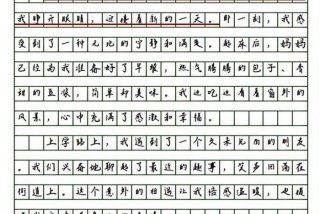 我睁开眼睛，迎接着新的一天。那一刻，我感
受到了一种无比的宁静和满足。起床后，妈妈
已经为我准备好了早餐，热气腾腾的包子、香
甜的豆浆，简单却美味。我边吃边看着窗外的
风景，心中充满了感激和幸福。
上学路上，我遇到了一个久未见面的朋友
。我们兴奋地聊起了最近的趣事，笑声回荡在
街道上。这个意外的相遇让我倍感温暖，也提